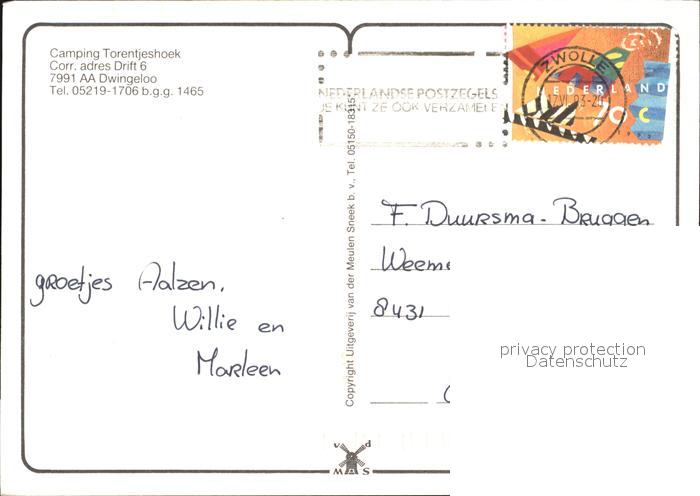 Camping Torentjeshoek
Corr. adres Drift 6
7991 AA Dwingeloo
Tel. 05219-1706 b.g.g. 1465
NEDERLANDSE POSTZEGELS
JE KUNT ZE OOK VERZAMELEN
ZWOLLE
NEDERLAND
70 c
1993
Copyright Uitgeverij van der Meulen Sneek b. v., Tel. 05150-18315
F. Duursma - Bruggen
8431
groetjes Aalzen,
Willie en
Marleen
privacy protection
Datenschutz
v d
MAS